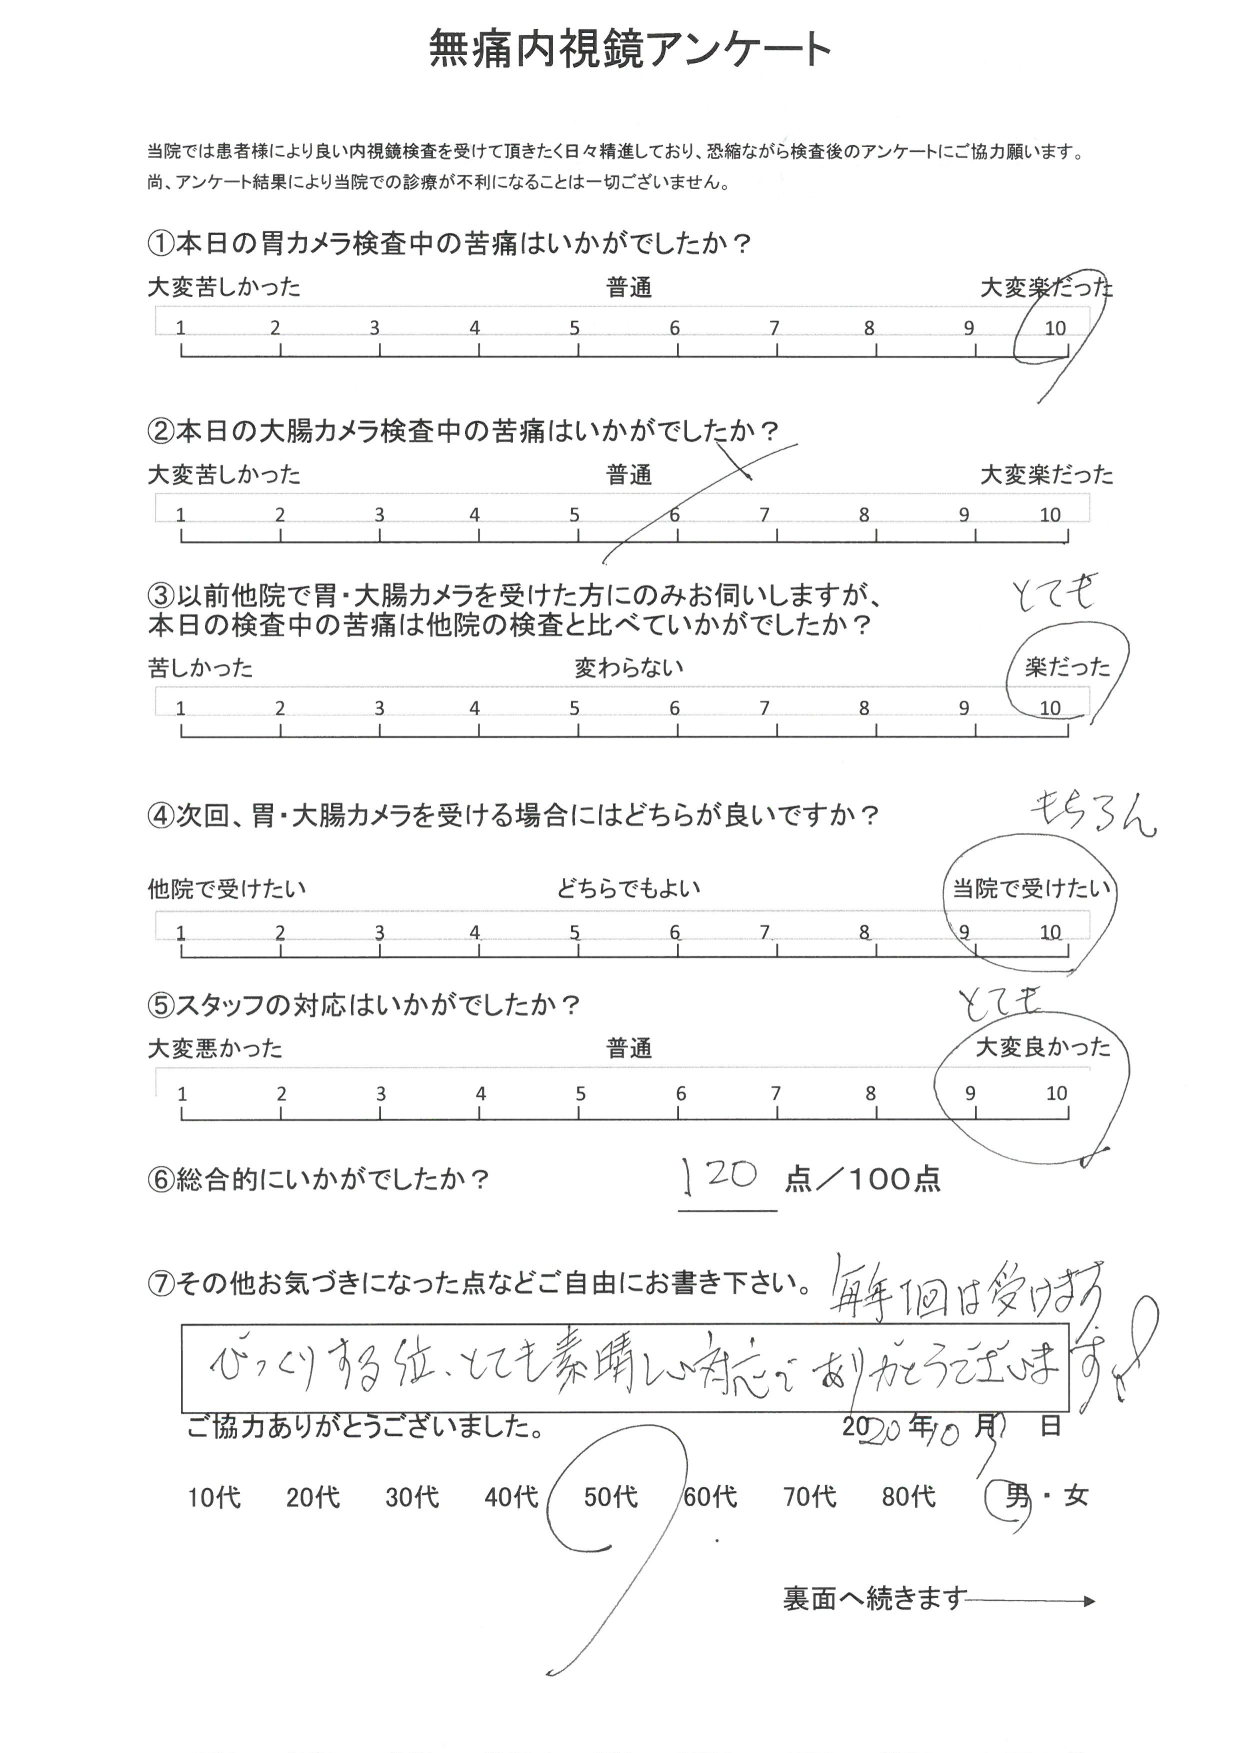 無痛内視鏡アンケート
当院では患者様により良い内視鏡検査を受けて頂きたく日々精進しており、恐縮ながら検査後のアンケートにご協力願います。
尚、アンケート結果により当院での診療が不利になることは一切ございません。
①本日の胃カメラ検査中の苦痛はいかがでしたか？
大変苦しかった 普通 大変楽だった
1 2 3 4 5 6 7 8 9 10
②本日の大腸カメラ検査中の苦痛はいかがでしたか？
大変苦しかった 普通 大変楽だった
1 2 3 4 5 6 7 8 9 10
③以前他院で胃・大腸カメラを受けた方にのみお伺いしますが、
とても
本日の検査中の苦痛は他院の検査と比べていかがでしたか？
苦しかった 変わらない 楽だった
1 2 3 4 5 6 7 8 9 10
もちろん
④次回、胃・大腸カメラを受ける場合にはどちらが良いですか？
他院で受けたい どちらでもよい 当院で受けたい
1 2 3 4 5 6 7 8 9 10
⑤スタッフの対応はいかがでしたか？ とても
大変悪かった 普通 大変良かった
1 2 3 4 5 6 7 8 9 10
⑥総合的にいかがでしたか？ 120 点／100点
⑦その他お気づきになった点などご自由にお書き下さい。 毎年1回は受けます
びっくりする位、とても素晴しい対応でありがとうございます!
ご協力ありがとうございました。 2020年10月 日
10代 20代 30代 40代 50代 60代 70代 80代 男・女
裏面へ続きます